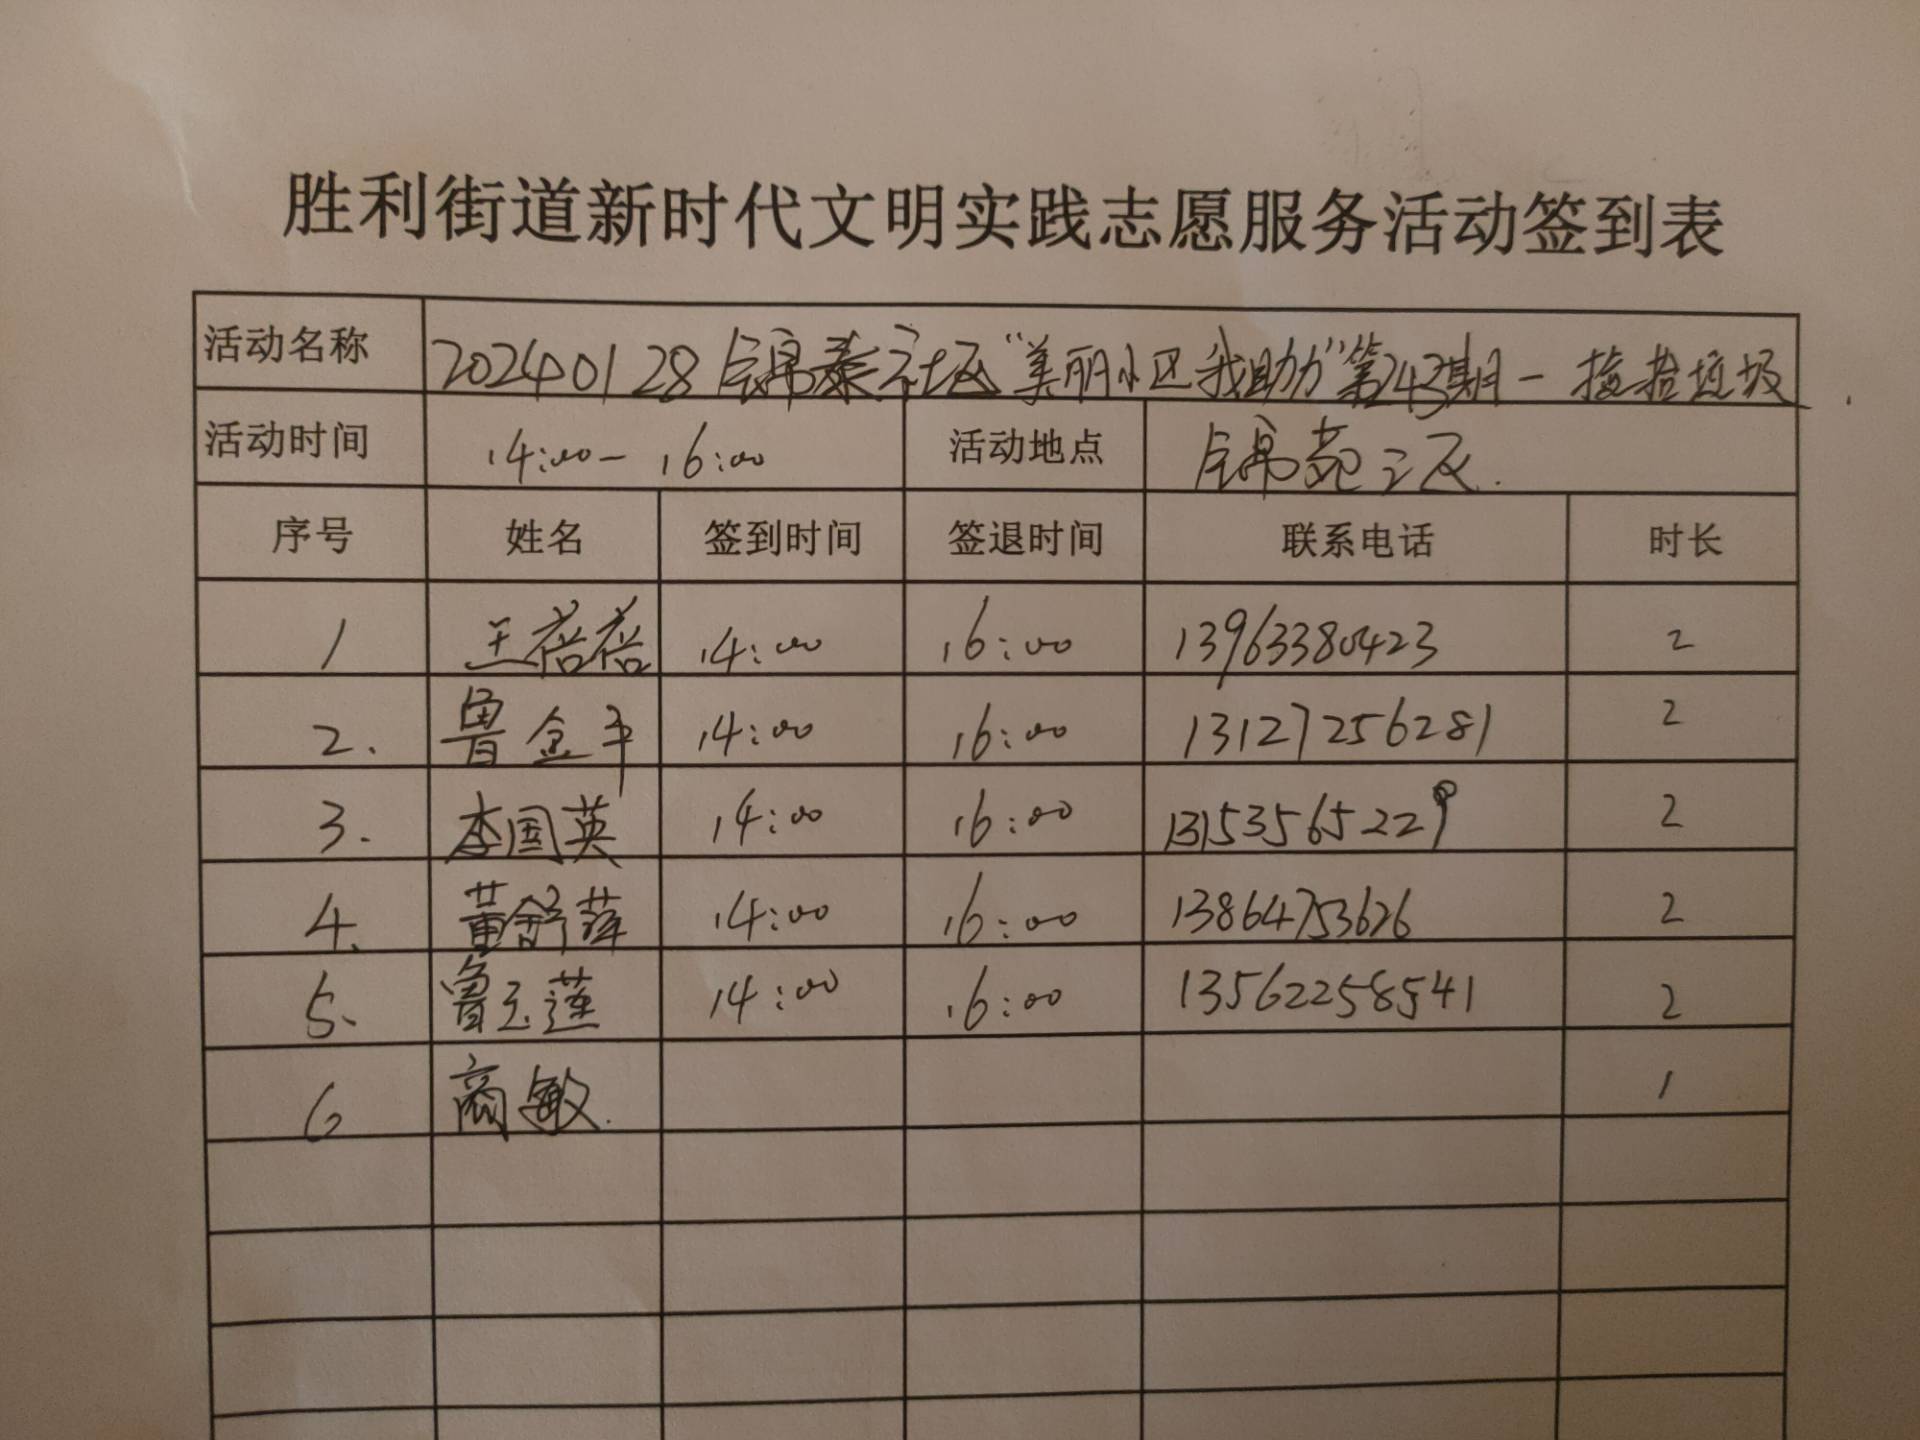 胜利街道新时代文明实践志愿服务活动签到表
活动名称 20240128锦泰社区“美丽小区我助力”第243期一捡拾垃圾
活动时间 14:00-16:00 活动地点 锦苑三区.
序号 姓名 签到时间 签退时间 联系电话 时长
1 王蓓蓓 14:00 16:00 13963380423 2
2. 鲁金平 14:00 16:00 13127256281 2
3. 李国英 14:00 16:00 13153565229 2
4. 董舒萍 14:00 16:00 13864753626 2
5. 鲁玉莲 14:00 16:00 13562258541 2
6 商敏. 1